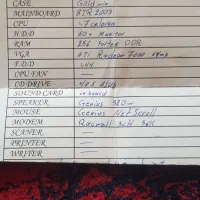 CASE Gold
MAINBOARD
CPU 1.7 celeron
H.D.D 60
RAM 256 DDR
VGA ATI Radeon 7000 64mb
F.D.D 1.44
CPU FAN —
CD DRIVE 40X ASUS
SOUND CARD onboard
SPEAKER Genius
MOUSE Genius Net Scroll
MODEM Rocwell 56K
SCANER —
PRINTER —
WRITER —